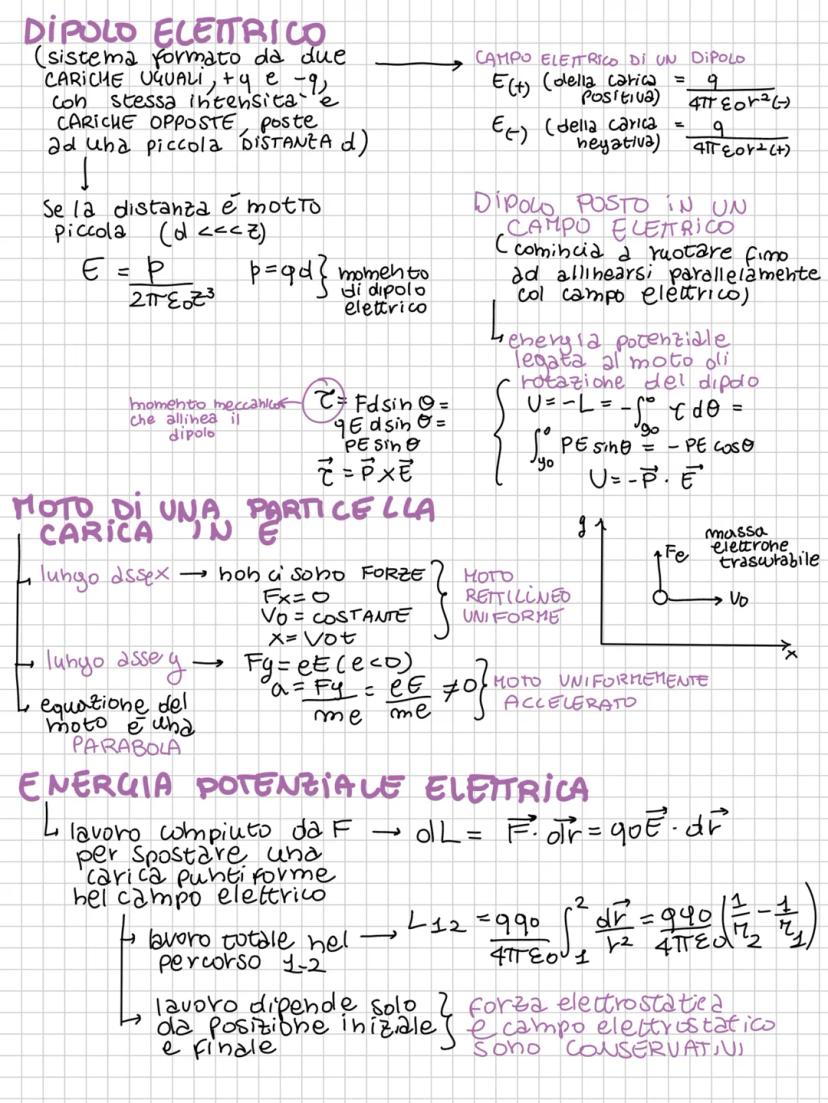 DIPOLO ELETTRICO
(sistema formato da due
CARICHE UGUALI, +q e -q,
con stessa intensità e
CARICHE OPPOSTE, poste
ad una piccola DISTANZA d)
CAMPO ELETTRICO DI UN DIPOLO
E(+) (della carica positiva) = q / 4πε0r²(-)
E(-) (della carica negativa) = q / 4πε0r²(+)
Se la distanza é motto
piccola (d <<<z)
E = p / 2πε0z³
p=qd} momento
di dipolo
elettrico
DIPOLO POSTO IN UN
CAMPO ELETTRICO
(comincia a ruotare fino
ad allinearsi parallelamente
col campo elettrico)
energia potenziale
legata al moto di
rotazione del dipolo
U=-L = -∫θ0^θ τdθ =
∫θ0^θ PE sinθ = - PE cosθ
U=-P⃗ · E⃗
momento meccanico
che allinea il
dipolo
τ = Fdsin θ =
qE dsin θ =
PE sin θ
τ⃗ = P⃗ × E⃗
MOTO DI UNA PARTICELLA
CARICA IN E
lungo asse x → non ci sono FORZE
Fx = 0
V0 = COSTANTE
x = V0t
MOTO
RETTILINEO
UNIFORME
y
Fe
V0
x
massa
elettrone
trascurabile
lungo asse y → Fy = eE (e<0)
a = Fy / me = eE / me ≠ 0
MOTO UNIFORMEMENTE
ACCELERATO
equazione del
moto é una
PARABOLA
ENERGIA POTENZIALE ELETTRICA
lavoro compiuto da F → dL = F⃗ · dr⃗ = q0E⃗ · dr⃗
per spostare una
carica puntiforme
nel campo elettrico
lavoro totale nel
percorso 1-2
→ L12 = qq0 / 4πε0 ∫1^2 dr⃗ / r² = qq0 / 4πε0 (1/r2 - 1/r1)
lavoro dipende solo
da posizione iniziale
e finale
forza elettrostatica
e campo elettrostatico
sono CONSERVATIVI